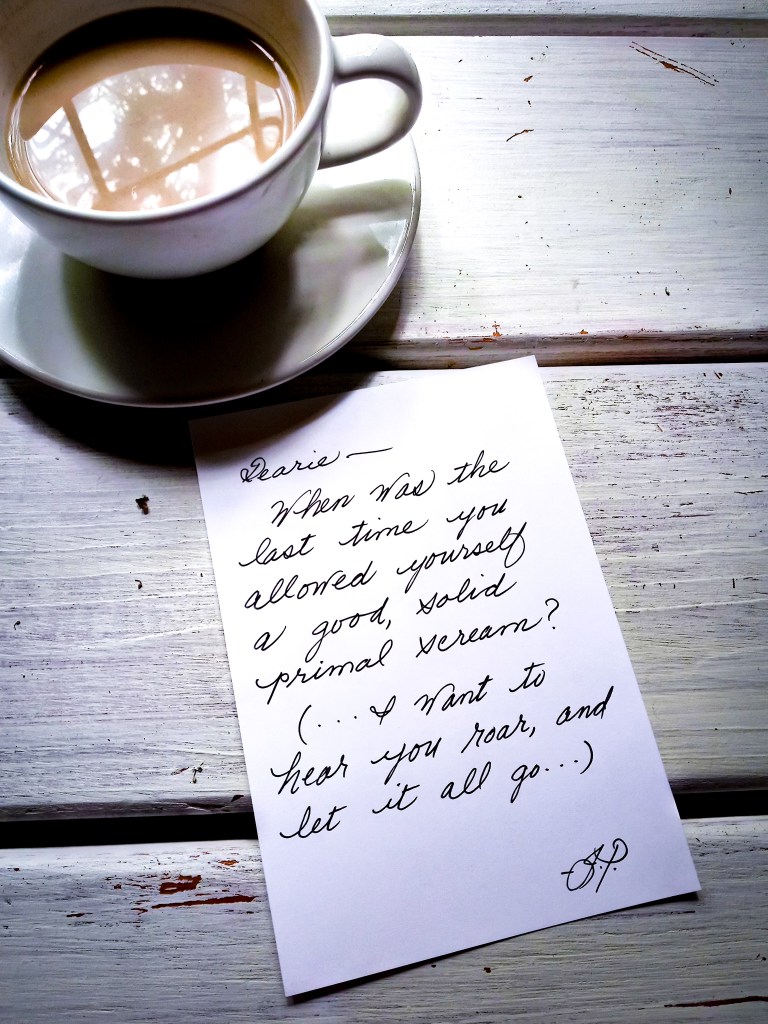 Dearie —
When was the
last time you
allowed yourself
a good, solid
primal scream?
(...I want to
hear you roar, and
let it all go...)